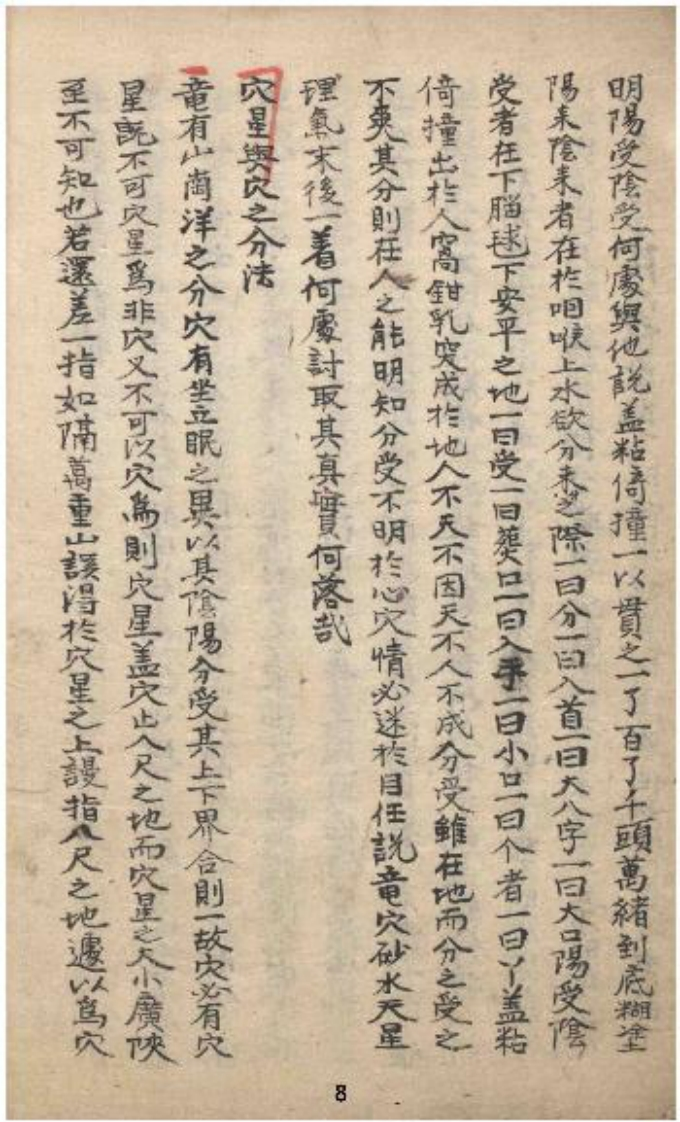 明陽受陰受何處與他説盖粘倚撞一以貫之一了百了千頭萬緒到底糊塗
陽来陰来者在扵咽喉上水欲分未𫝆之際一曰分一曰入首一曰大八字一曰大口陽受陰
受者在下腦毬下安平之地一曰受一曰葬口一曰入手一曰小口一曰个者一曰丫盖粘
倚撞出扵人窩鉗乳突成扵地人不天不因天不人不成分受雖在地而分之受之
不爽其分則在人之能明知分受不明扵心穴情必迷扵目任説竜穴砂水天星
理氣末後一着何處討取其真實何落哉
穴星與穴之分法
竜有山崗洋之分穴有坐立眠之異以其陰陽分受其上下界合則一故穴必有穴
星既不可穴星爲非穴又不可以穴爲則穴星盖穴止八尺之地而穴星之大小廣陜
至不可知也若還差一指如隔萬重山誤淂扵穴星之上謾指八尺之地遽以爲穴
8